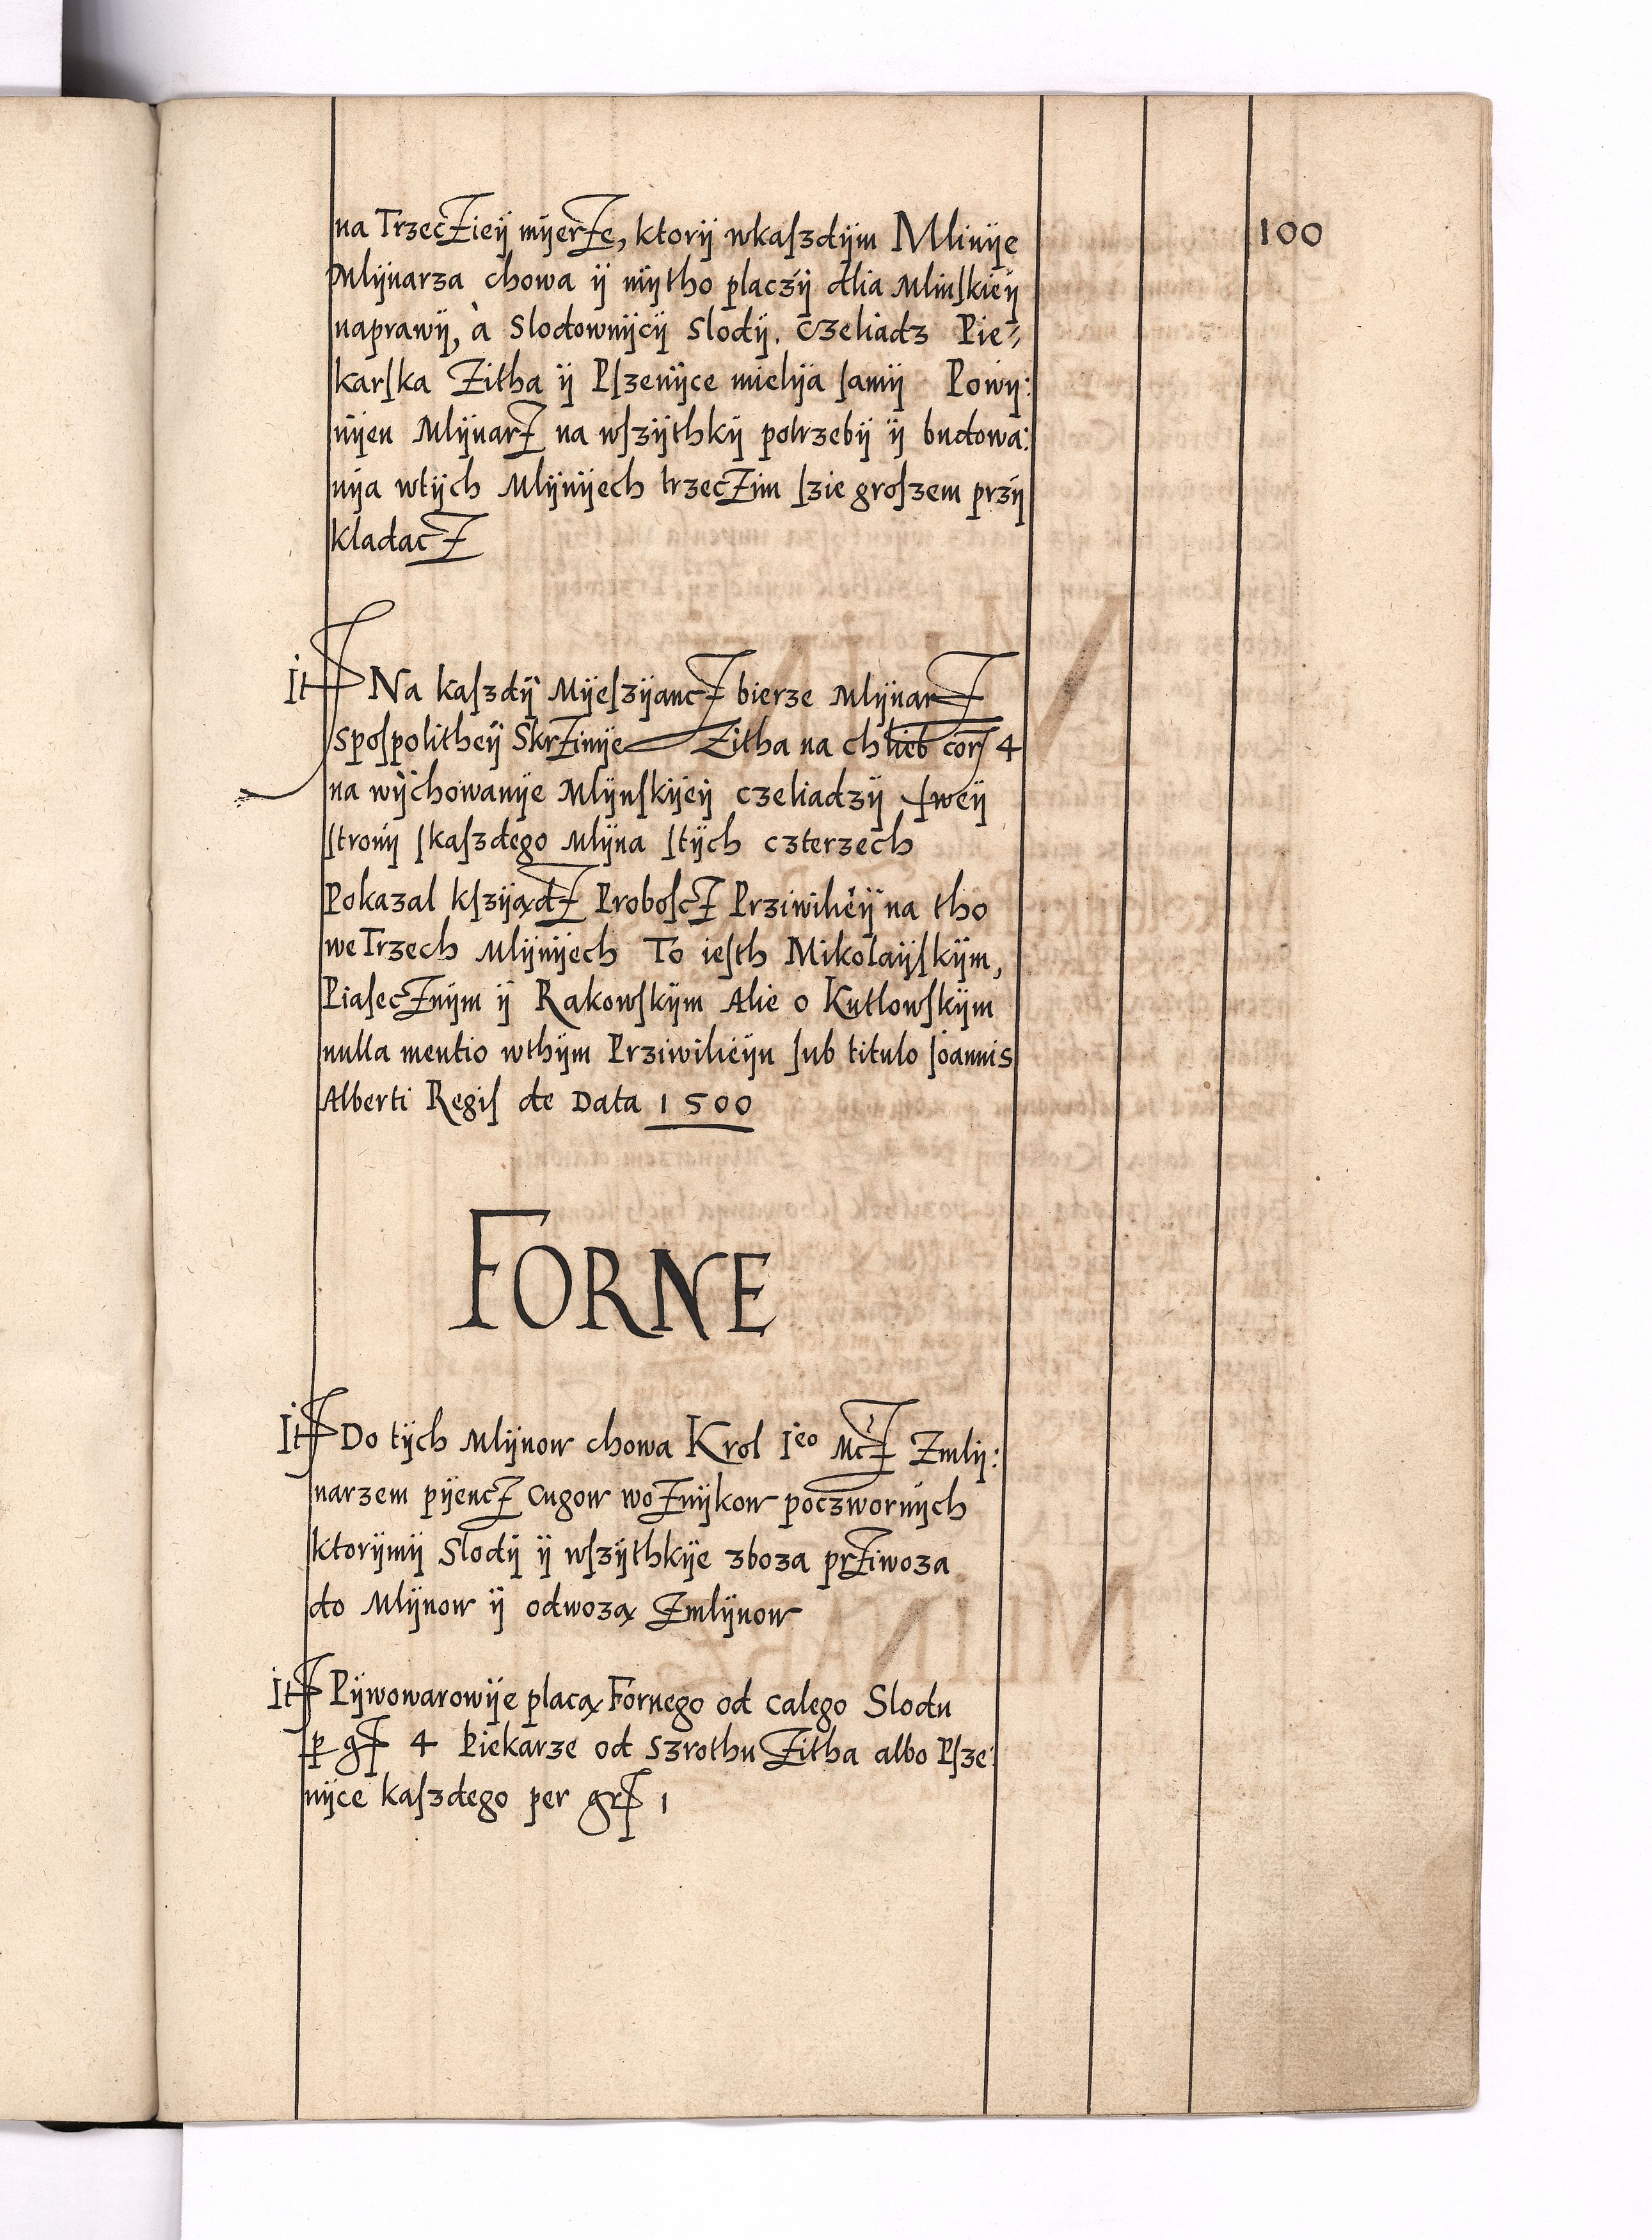 100
na TrzecZieÿ mÿerZe, ktorÿ wkaſzdÿm Mlinÿe
Mlÿnarza chowa ÿ mÿtho placzÿ dlia Mlinſkieÿ
naprawÿ, à Slodownÿcÿ Slodÿ. Czeliadz Pie⸗
karſka Zitha ÿ Pſzenÿce mielÿa ſamÿ Powÿ:
nÿen MlÿnarZ na wſzÿthkÿ potrzebÿ ÿ budowa:
nÿa wtÿch Mlÿnÿech trzecZim ſzie groſzem przÿ
kladacZ
It Na kaſzdÿ MÿeſzÿancZ bierze MlÿnarZ
Spoſpolitheÿ SkrZinÿe Zitha na chlieb corſ 4
na wÿchowanÿe Mlÿnſkÿeÿ czeliadzÿ ſweÿ
ſtronÿ ſkaſzdego Mlÿna ſtÿch czterzech
Pokazal kſzÿądZ ProboſcZ Prziwilieÿ na tho
we Trzech Mlÿnÿech To ieſth Mikolaÿſkÿm,
PiaſecZnÿm ÿ Rakowſkÿm Alie o Kutlowſkÿm
nulla mentio wthÿm Prziwilieÿu ſub titulo Ioannis
Alberti Regiſ de Data 1500
FORNE
It Do tÿch Mlÿnow chowa Krol Ieo McZ Zmlÿ:
narzem pÿencZ Cugow woZnÿkow poczwornÿch
ktorÿmÿ Slodÿ ÿ wſzÿthkÿe zboza prZiwoza
do Mlÿnow ÿ odwozą Zmlÿnow
It Pÿwowarowÿe placą Fornego od calego Slodu
p gſ 4 Piekarze od Szrothu Zitha albo Pſze:
nÿce kaſzdego per grſ 1